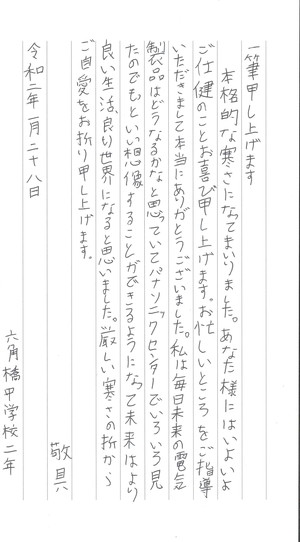 一筆申し上げます
本格的な寒さになってまいりました。あなた様にはいよいよ
ご仕健のことお喜び申し上げます。お忙しいところをご指導
いただきまして本当にありがとうございました。私は毎日未来の電気
製品はどうなるかなと思っていてパナソニックセンターでいろいろ見
たのでもっといい想像することができるようになって未来はより
良い生活、良い世界になると思いました。厳しい寒さの折から
ご自愛をお折り申し上げます。
敬具
令和二年一月二十八日
六角橋中学校二年